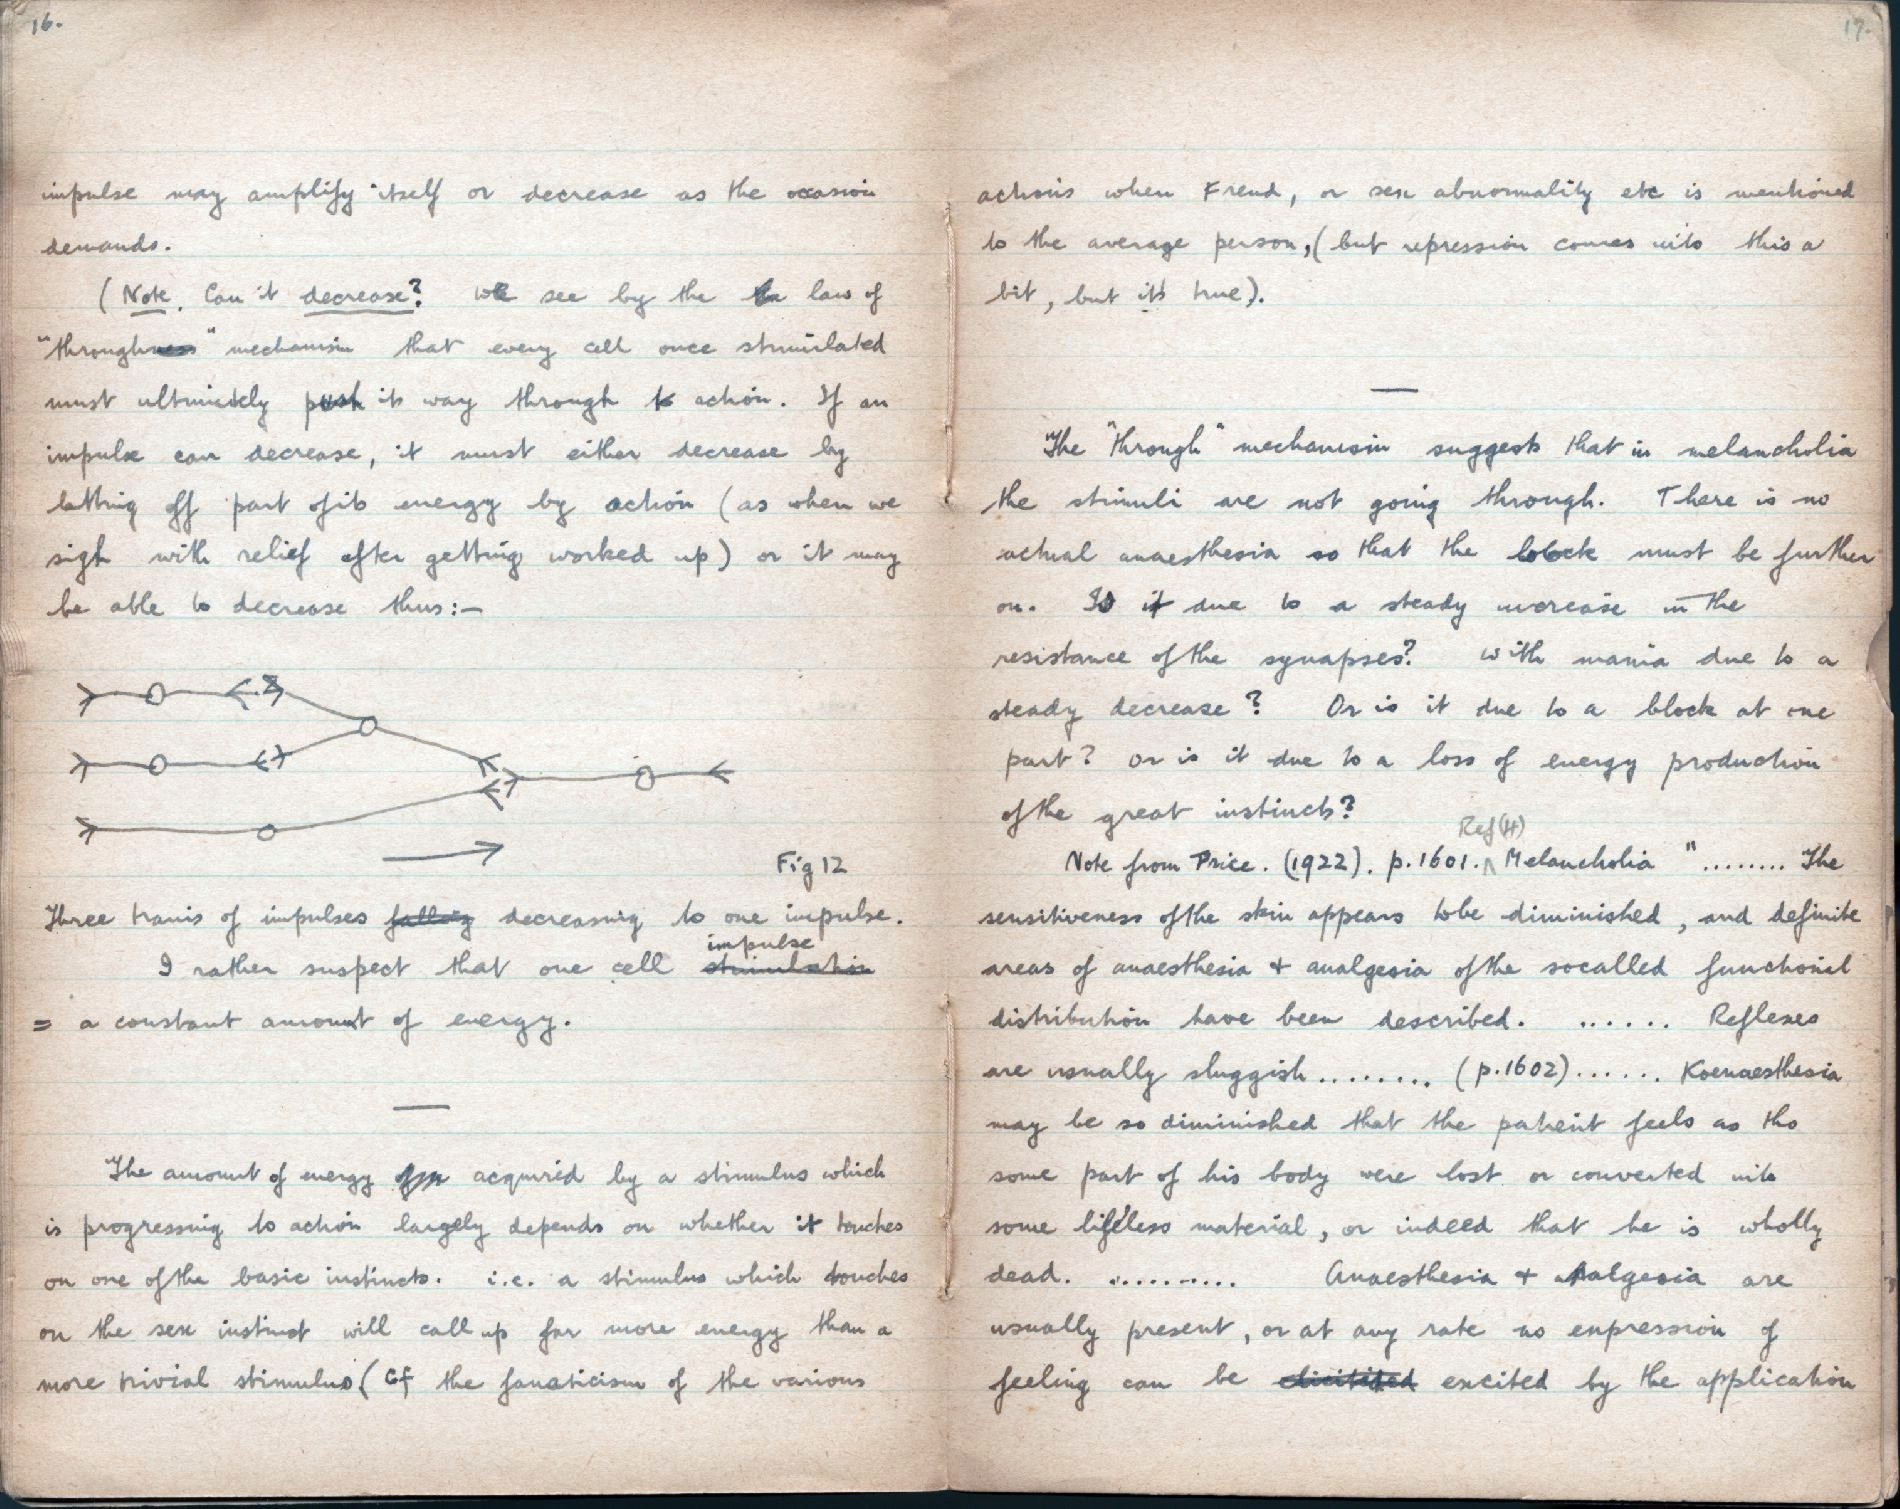 16.
impulse may amplify itself or decrease as the occasion
demands.
(Note. Can it decrease? We see by the law of
"through" mechanism that every cell once stimulated
must ultimately push its way through to action. If an
impulse can decrease, it must either decrease by
letting off part of its energy by action (as when we
sigh with relief after getting worked up) or it may
be able to decrease thus:—
Fig 12
Three trains of impulses falling decreasing to one impulse.
impulse
I rather suspect that one cell stimulation
= a constant amount of energy.
The amount of energy acquired by a stimulus which
is progressing to action largely depends on whether it touches
on one of the basic instincts. i.e. a stimulus which touches
on the sex instinct will call up far more energy than a
more trivial stimulus (Cf the fanaticism of the various
17.
actions when Freud, or sex abnormality etc is mentioned
to the average person, (but repression comes into this a
bit, but its true).
The "through" mechanism suggests that in melancholia
the stimuli are not going through. There is no
actual anaesthesia so that the block must be further
on. Is it due to a steady increase in the
resistance of the synapses? With mania due to a
steady decrease? Or is it due to a block at one
part? Or is it due to a loss of energy production
of the great instincts?
Ref (H)
Note from Price. (1922). p.1601. Melancholia "........ The
sensitiveness of the skin appears to be diminished, and definite
areas of anaesthesia + analgesia of the socalled functional
distribution have been described. ...... Reflexes
are usually sluggish......... (p.1602)...... Koenaesthesia
may be so diminished that the patient feels as tho
some part of his body were lost or converted into
some lifeless material, or indeed that he is wholly
dead. .......... Anaesthesia + Analgesia are
usually present, or at any rate no expression of
feeling can be elicitited excited by the application